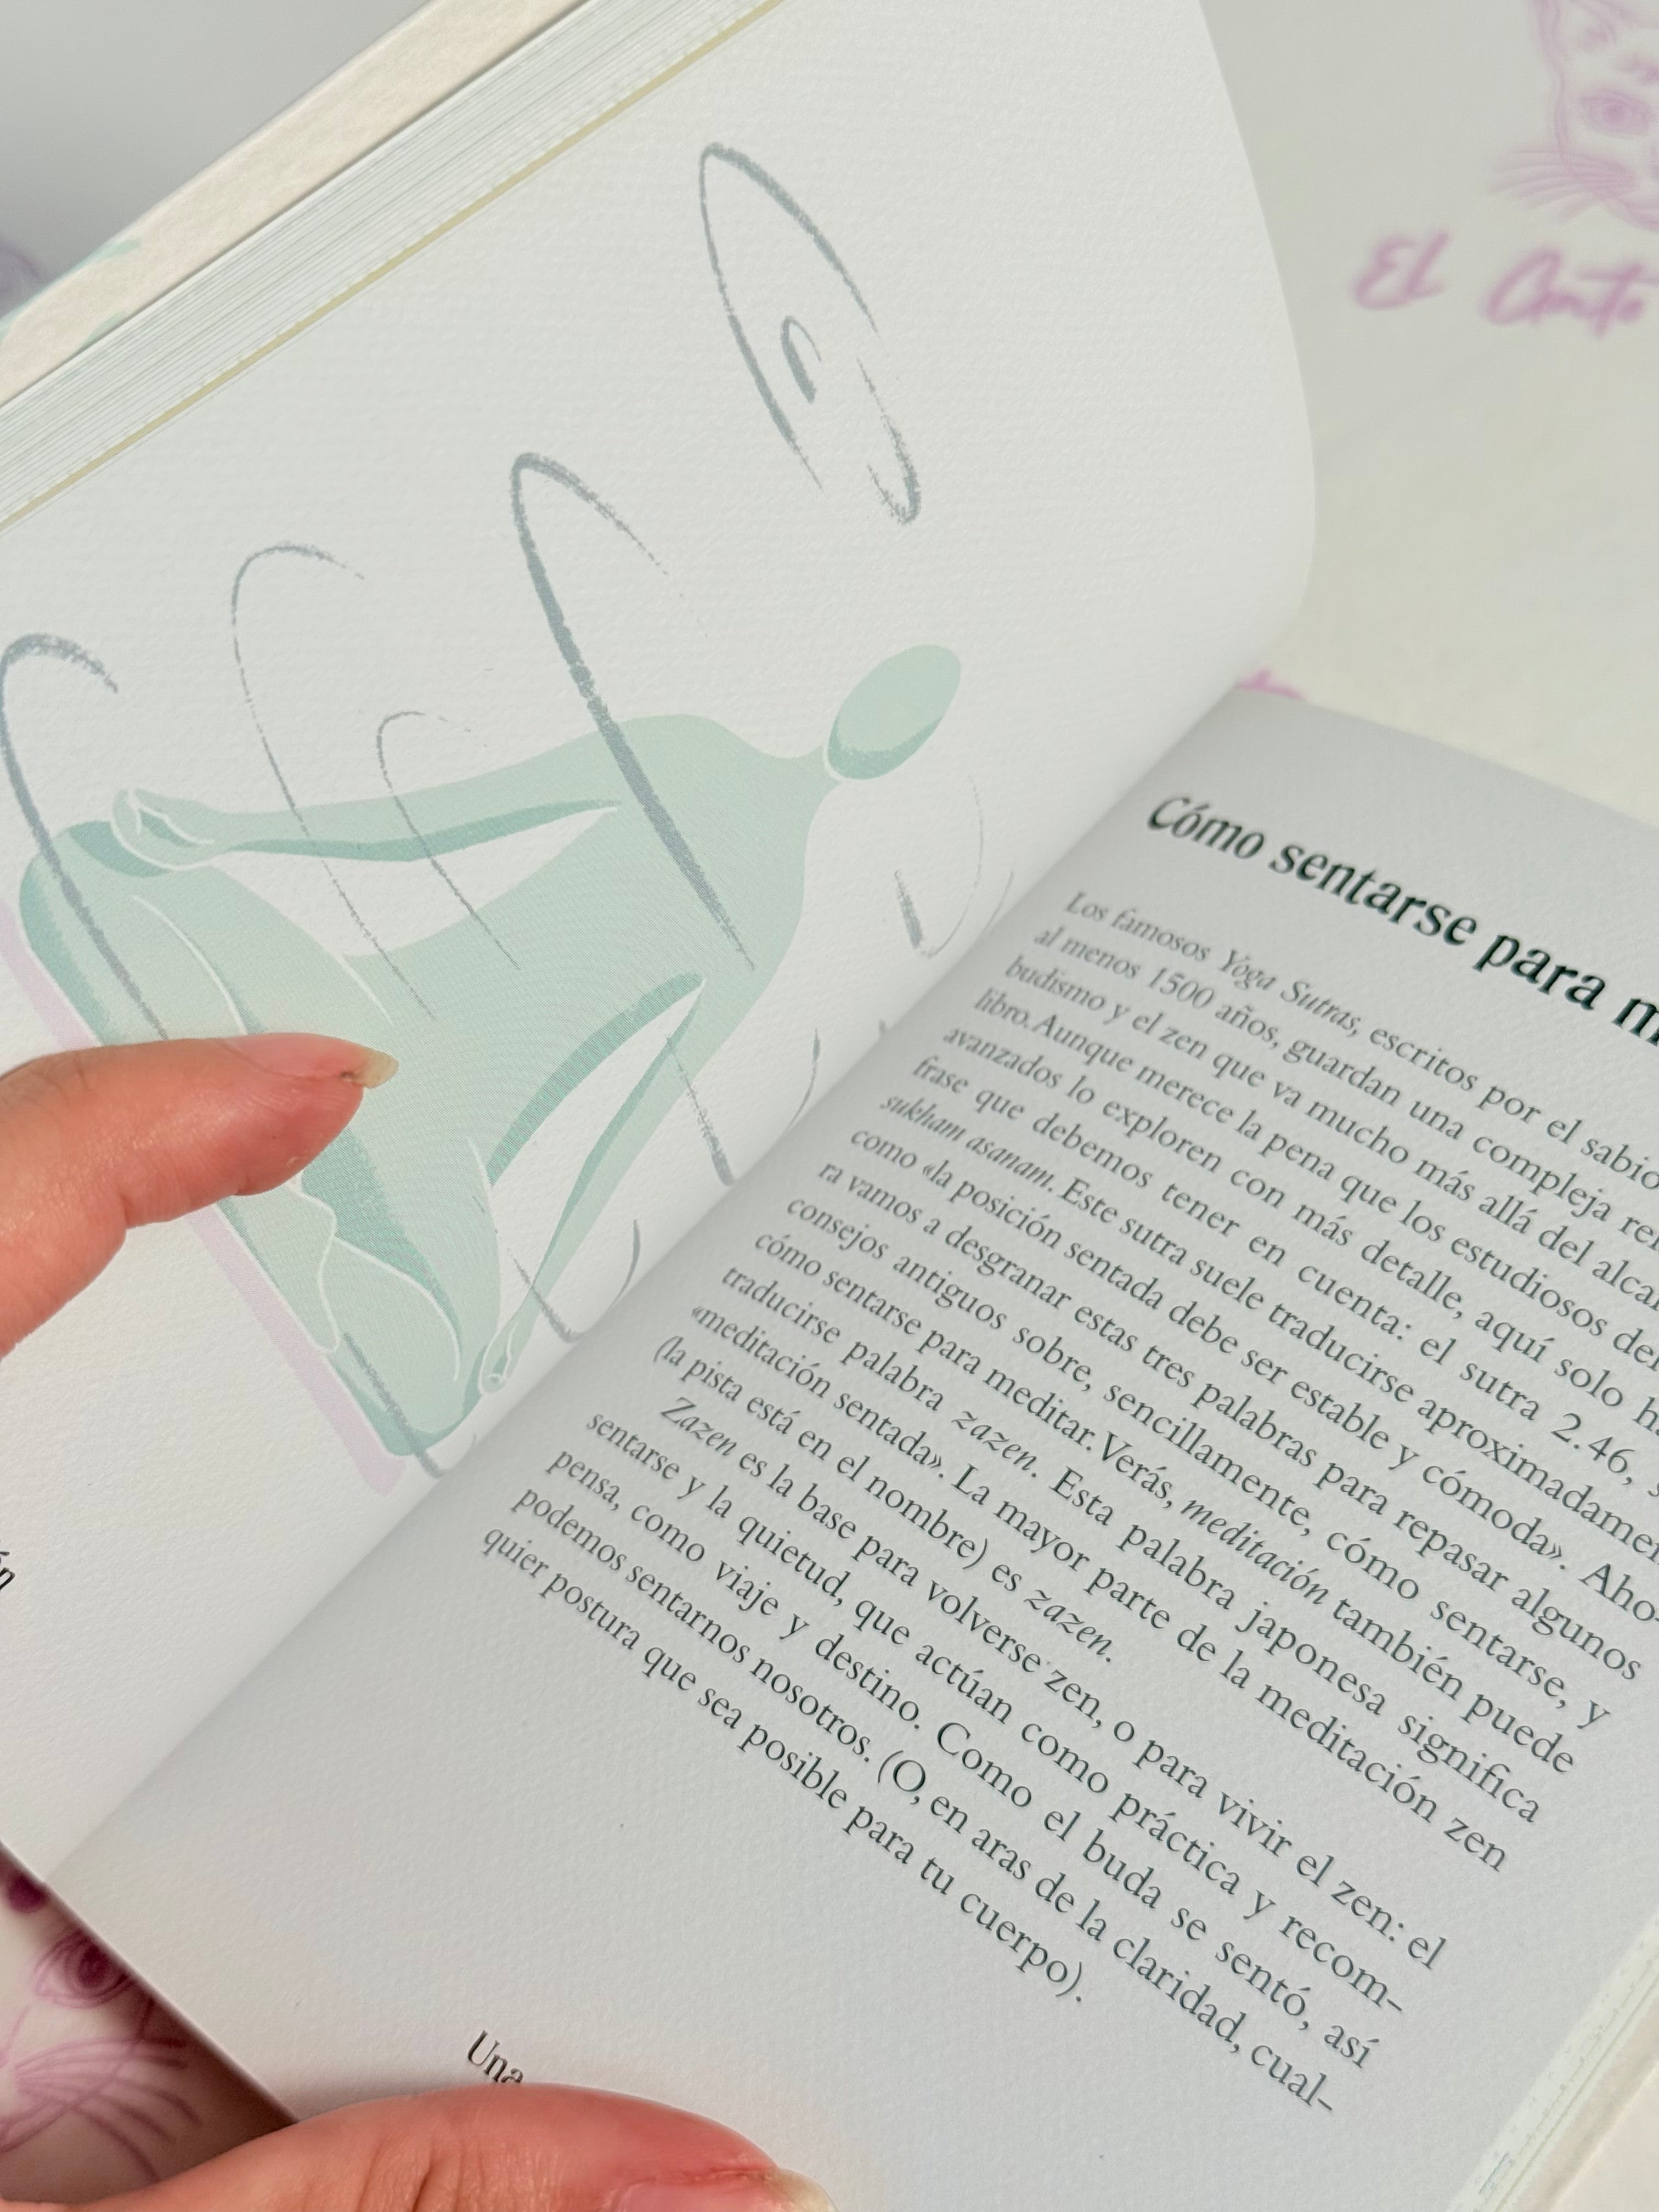 El
Cómo sentarse para
Los famosos Yoga Sutras, escritos por el sabio
al menos 1500 años, guardan una compleja
budismo y el zen que va mucho más allá del
libro. Aunque merece la pena que los estudiosos
avanzados lo exploren con más detalle, aquí solo
frase que debemos tener en cuenta: el sutra 2.46,
sukham asanam. Este sutra suele traducirse
como «la posición sentada debe ser estable y cómoda». Aho-
ra vamos a desgranar estas tres palabras para repasar algunos
consejos antiguos sobre, sencillamente, cómo sentarse, y
cómo sentarse para meditar. Verás, meditación también puede
traducirse palabra zazen. Esta palabra japonesa significa
«meditación sentada». La mayor parte de la meditación zen
(la pista está en el nombre) es zazen.
Zazen es la base para volverse zen, o para vivir el zen: el
sentarse y la quietud, que actúan como práctica y recom-
pensa, como viaje y destino. Como el buda se sentó, así
podemos sentarnos nosotros. (O, en aras de la claridad, cual-
quier postura que sea posible para tu cuerpo).
Una